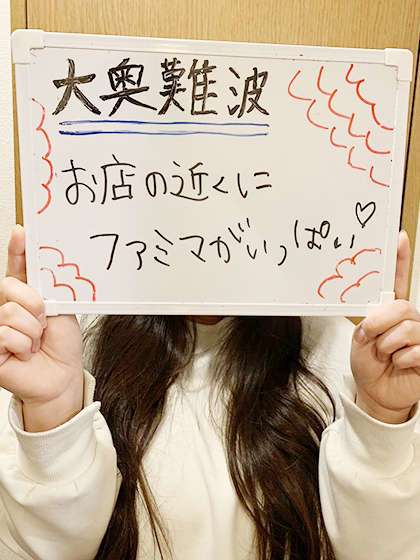 大奥難波
お店の近くに
ファミマがいっぱい♡